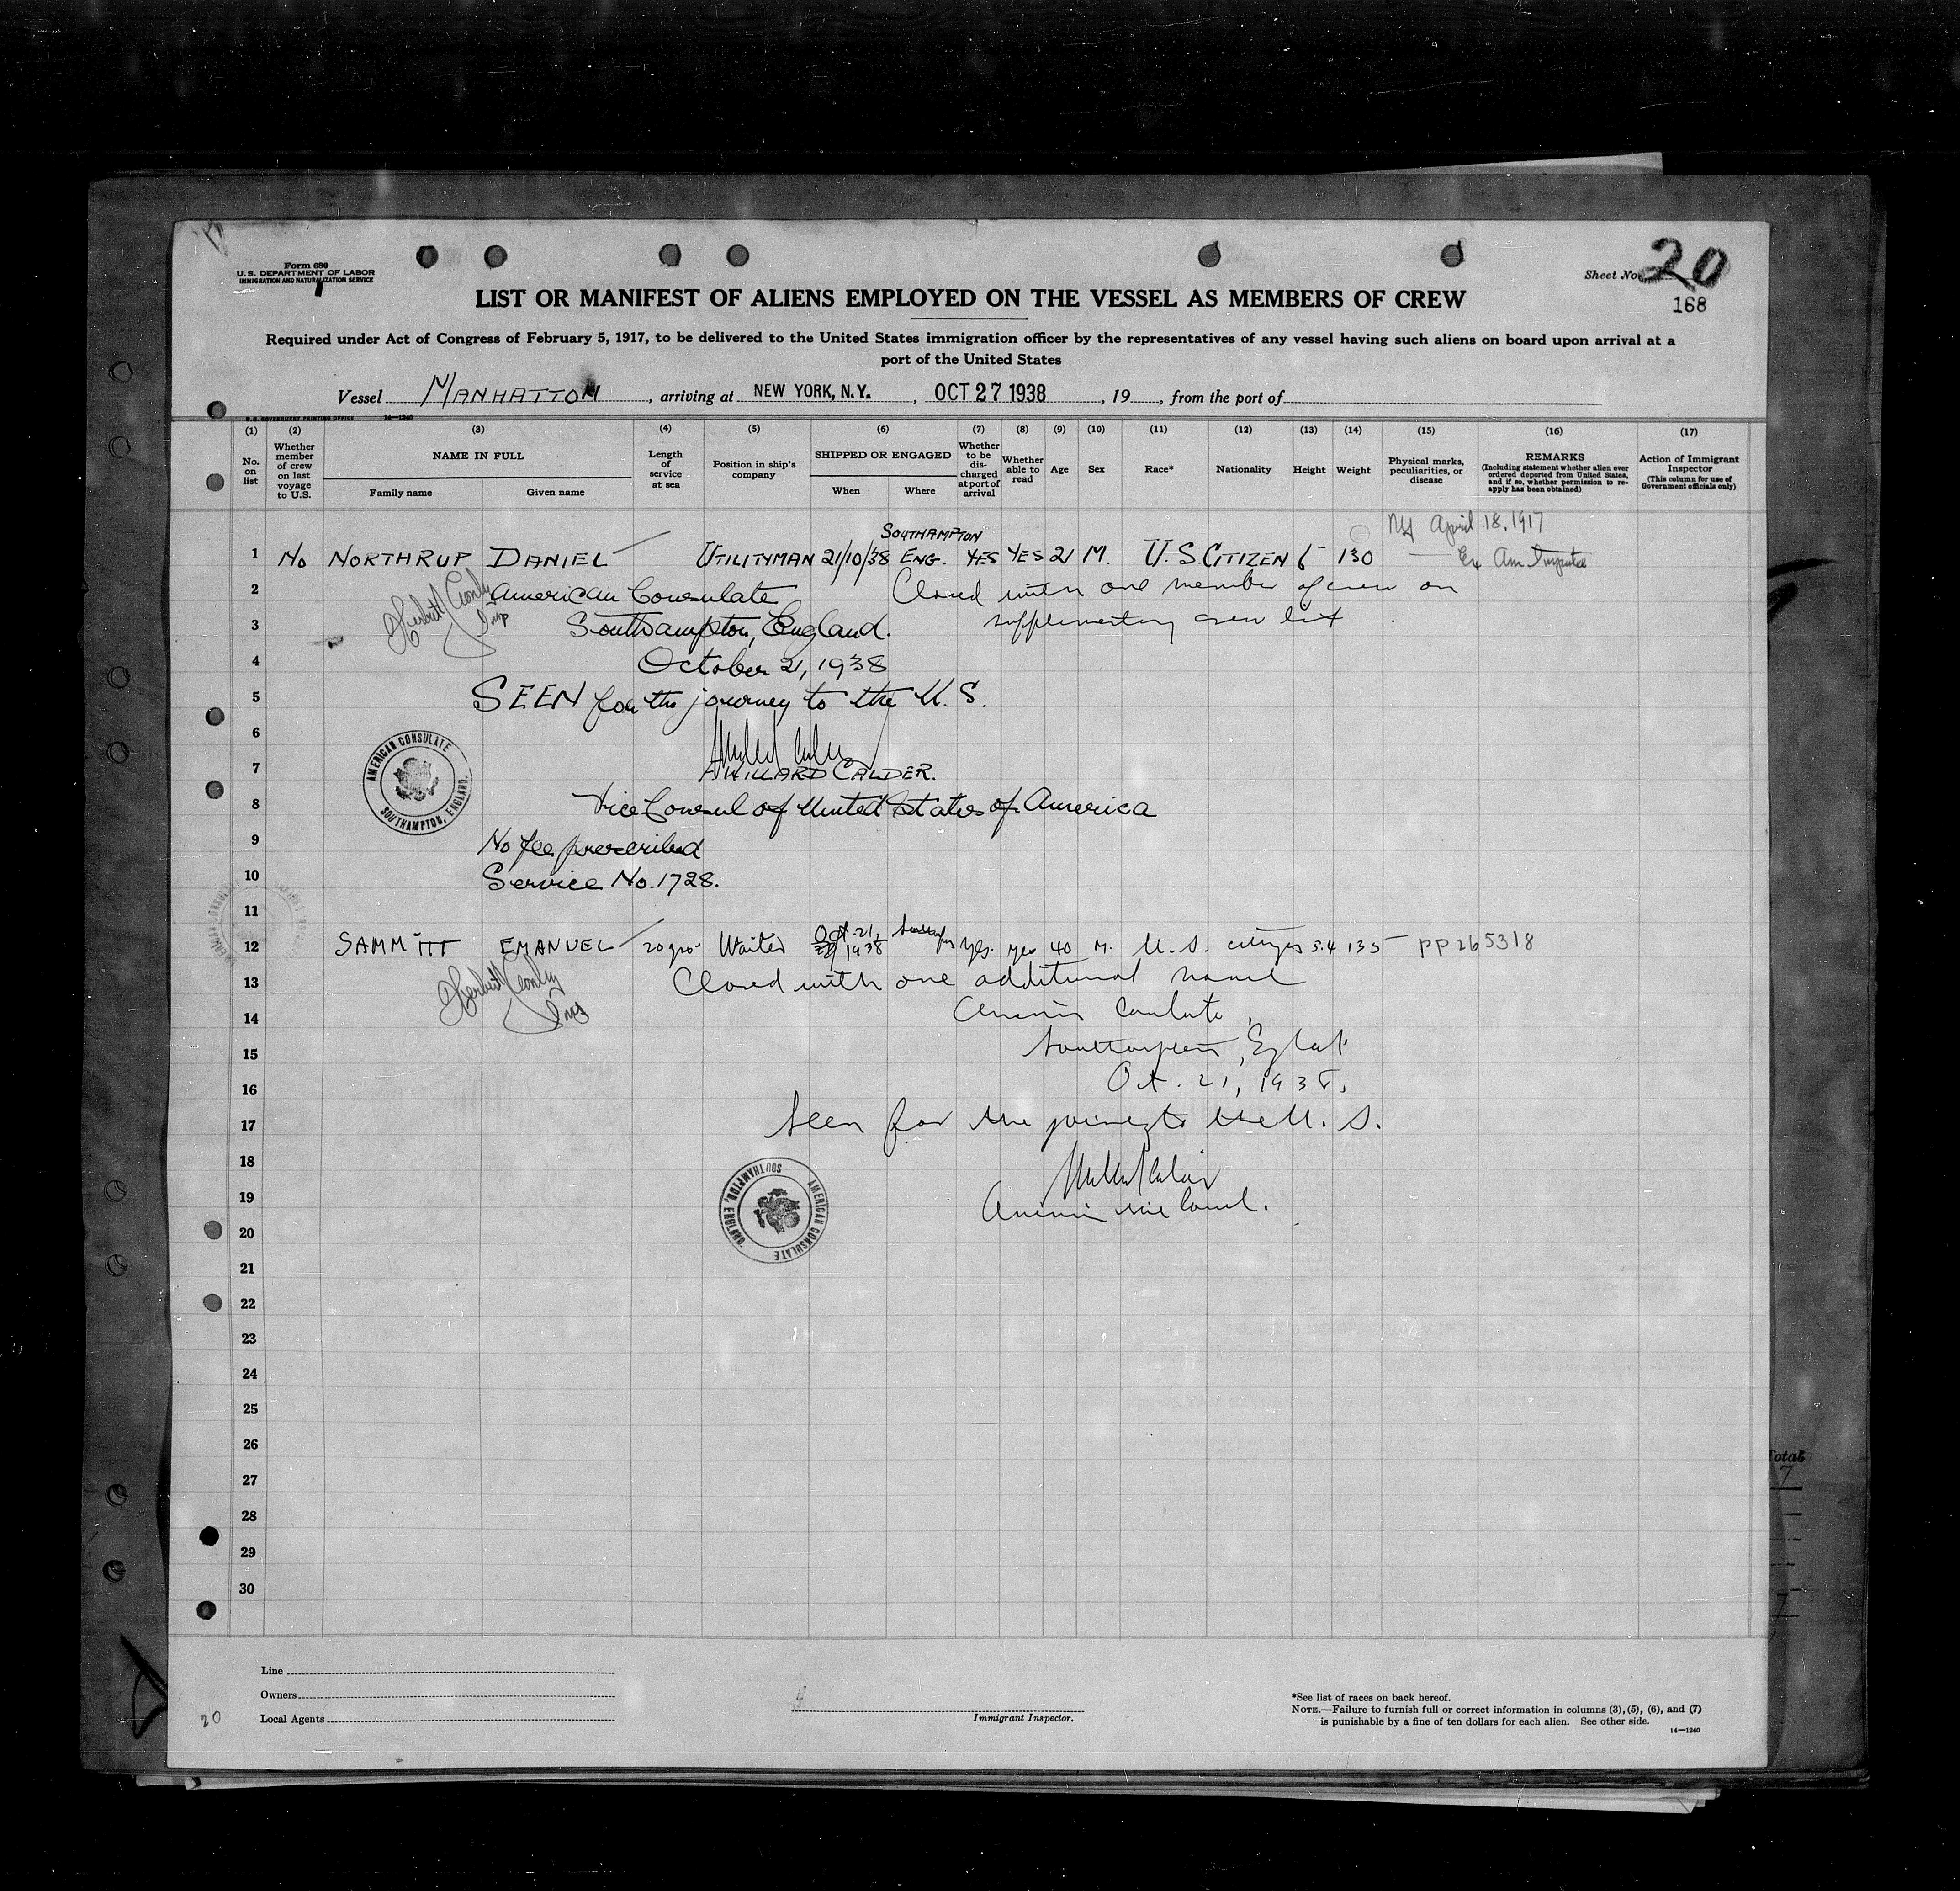 Form 680
U. S. DEPARTMENT OF LABOR
IMMIGRATION AND NATURALIZATION SERVICE
Sheet No. 20
168
LIST OR MANIFEST OF ALIENS EMPLOYED ON THE VESSEL AS MEMBERS OF CREW
Required under Act of Congress of February 5, 1917, to be delivered to the United States immigration officer by the representatives of any vessel having such aliens on board upon arrival at a
port of the United States
Vessel MANHATTON, arriving at NEW YORK, N.Y., OCT 27 1938, 19, from the port of
U. S. GOVERNMENT PRINTING OFFICE 14—1240
(1) (2) (3) (4) (5) (6) (7) (8) (9) (10) (11) (12) (13) (14) (15) (16) (17)
No. on list
Whether member of crew on last voyage to U.S.
NAME IN FULL
Family name Given name
Length of service at sea
Position in ship's company
SHIPPED OR ENGAGED
When Where
Whether to be discharged at port of arrival
Whether able to read
Age
Sex
Race*
Nationality
Height
Weight
Physical marks, peculiarities, or disease
REMARKS
(Including statement whether alien ever ordered deported from United States, and if so, whether permission to reapply has been obtained)
Action of Immigrant Inspector
(This column for use of Government officials only)
SOUTHAMPTON NY April 18, 1917
1 No NORTHRUP DANIEL UTILITYMAN 21/10/38 ENG. YES YES 21 M. U.S. CITIZEN 6 130 Ex Am
2 American Consulate Closed with one member of crew on
3 Southampton, England. supplementary crew list
Herbert Conly
Insp
4 October 21, 1938
5 SEEN for the journey to the U.S.
6
7 WILLARD CALDER.
AMERICAN CONSULATE
SOUTHAMPTON, ENGLAND.
8 Vice Consul of United States of America
9 No fee prescribed
10 Service No. 1728.
11
12 SAMMITT EMANUEL 20 yrs Waiter Oct. 21, 1938 yes. yes 40 M. U.S. citizen 5.4 135 PP 265318
13 Closed with one additional name
Herbert Conly
Ins
14 American Consulate,
15 Southampton, England
16 Oct. 21, 1938.
17 Seen for the journey to the U.S.
18
19 American Vice Consul.
AMERICAN CONSULATE
SOUTHAMPTON, ENGLAND.
20
21
22
23
24
25
26
27
28
29
30
Total
7
Line
Owners
Local Agents
Immigrant Inspector.
*See list of races on back hereof.
NOTE.—Failure to furnish full or correct information in columns (3), (5), (6), and (7)
is punishable by a fine of ten dollars for each alien. See other side.
14—1240
20